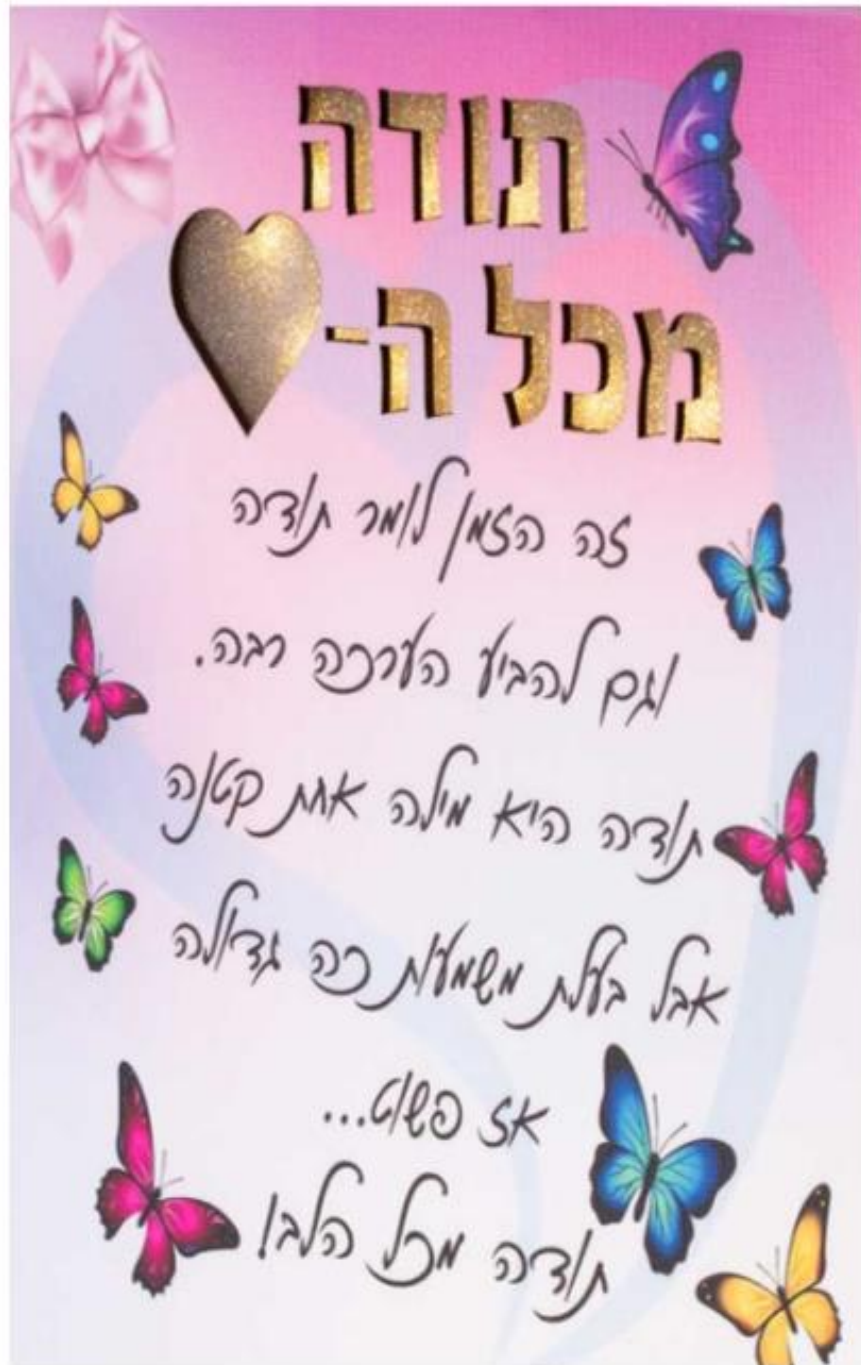 תודה
מכל ה-
זה הזמן לומר תודה
וגם להביע הערכה רבה.
תודה היא מילה אחת קטנה
אבל בעלת משמעות כה גדולה
אז פשוט...
תודה מכל הלב!